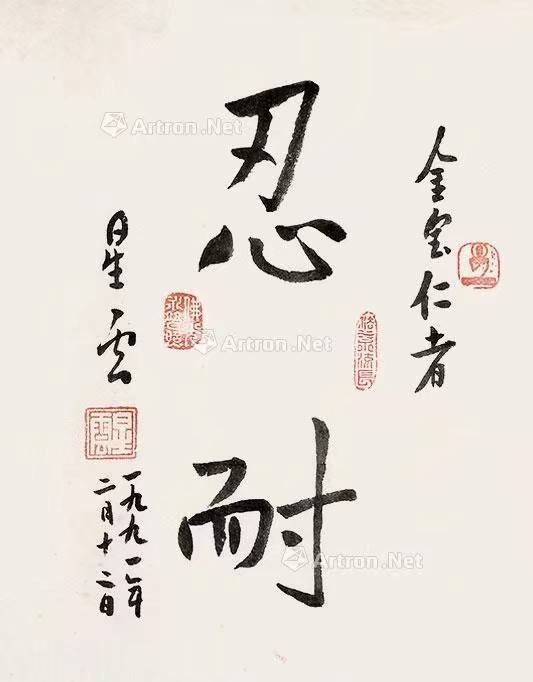 金宝仁者
忍耐
星云
星雲
一九九一年
二月十二日
Artron.Net
Artron.Net
Artron.Net